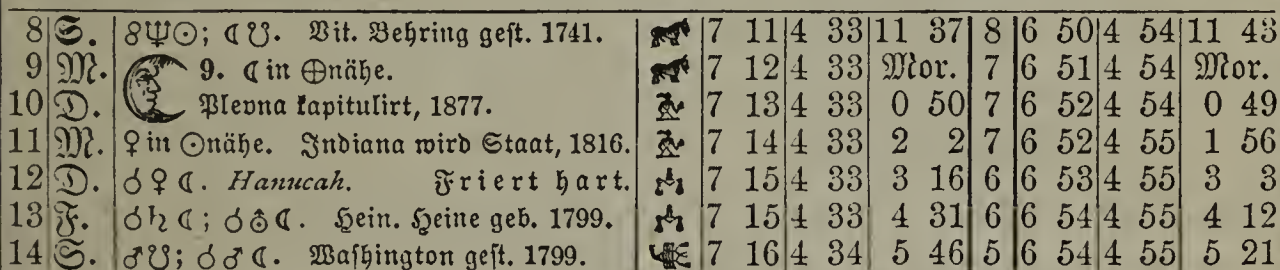 8 S. ☍♆☉; ☾☋. Vit. Behring gest. 1741. 7 11 4 33 11 37 8 6 50 4 54 11 43
9 M. 9. ☾ in ⊕nähe. 7 12 4 33 Mor. 7 6 51 4 54 Mor.
10 D. Plevna kapitulirt, 1877. 7 13 4 33 0 50 7 6 52 4 54 0 49
11 M. ♀ in ☉nähe. Indiana wird Staat, 1816. 7 14 4 33 2 2 7 6 52 4 55 1 56
12 D. ☌♀☾. Hanucah. Friert hart. 7 15 4 33 3 16 6 6 53 4 55 3 3
13 F. ☌♄☾; ☌⛢☾. Hein. Heine geb. 1799. 7 15 4 33 4 31 6 6 54 4 55 4 12
14 S. ♂☋; ☌♂☾. Washington gest. 1799. 7 16 4 34 5 46 5 6 54 4 55 5 21